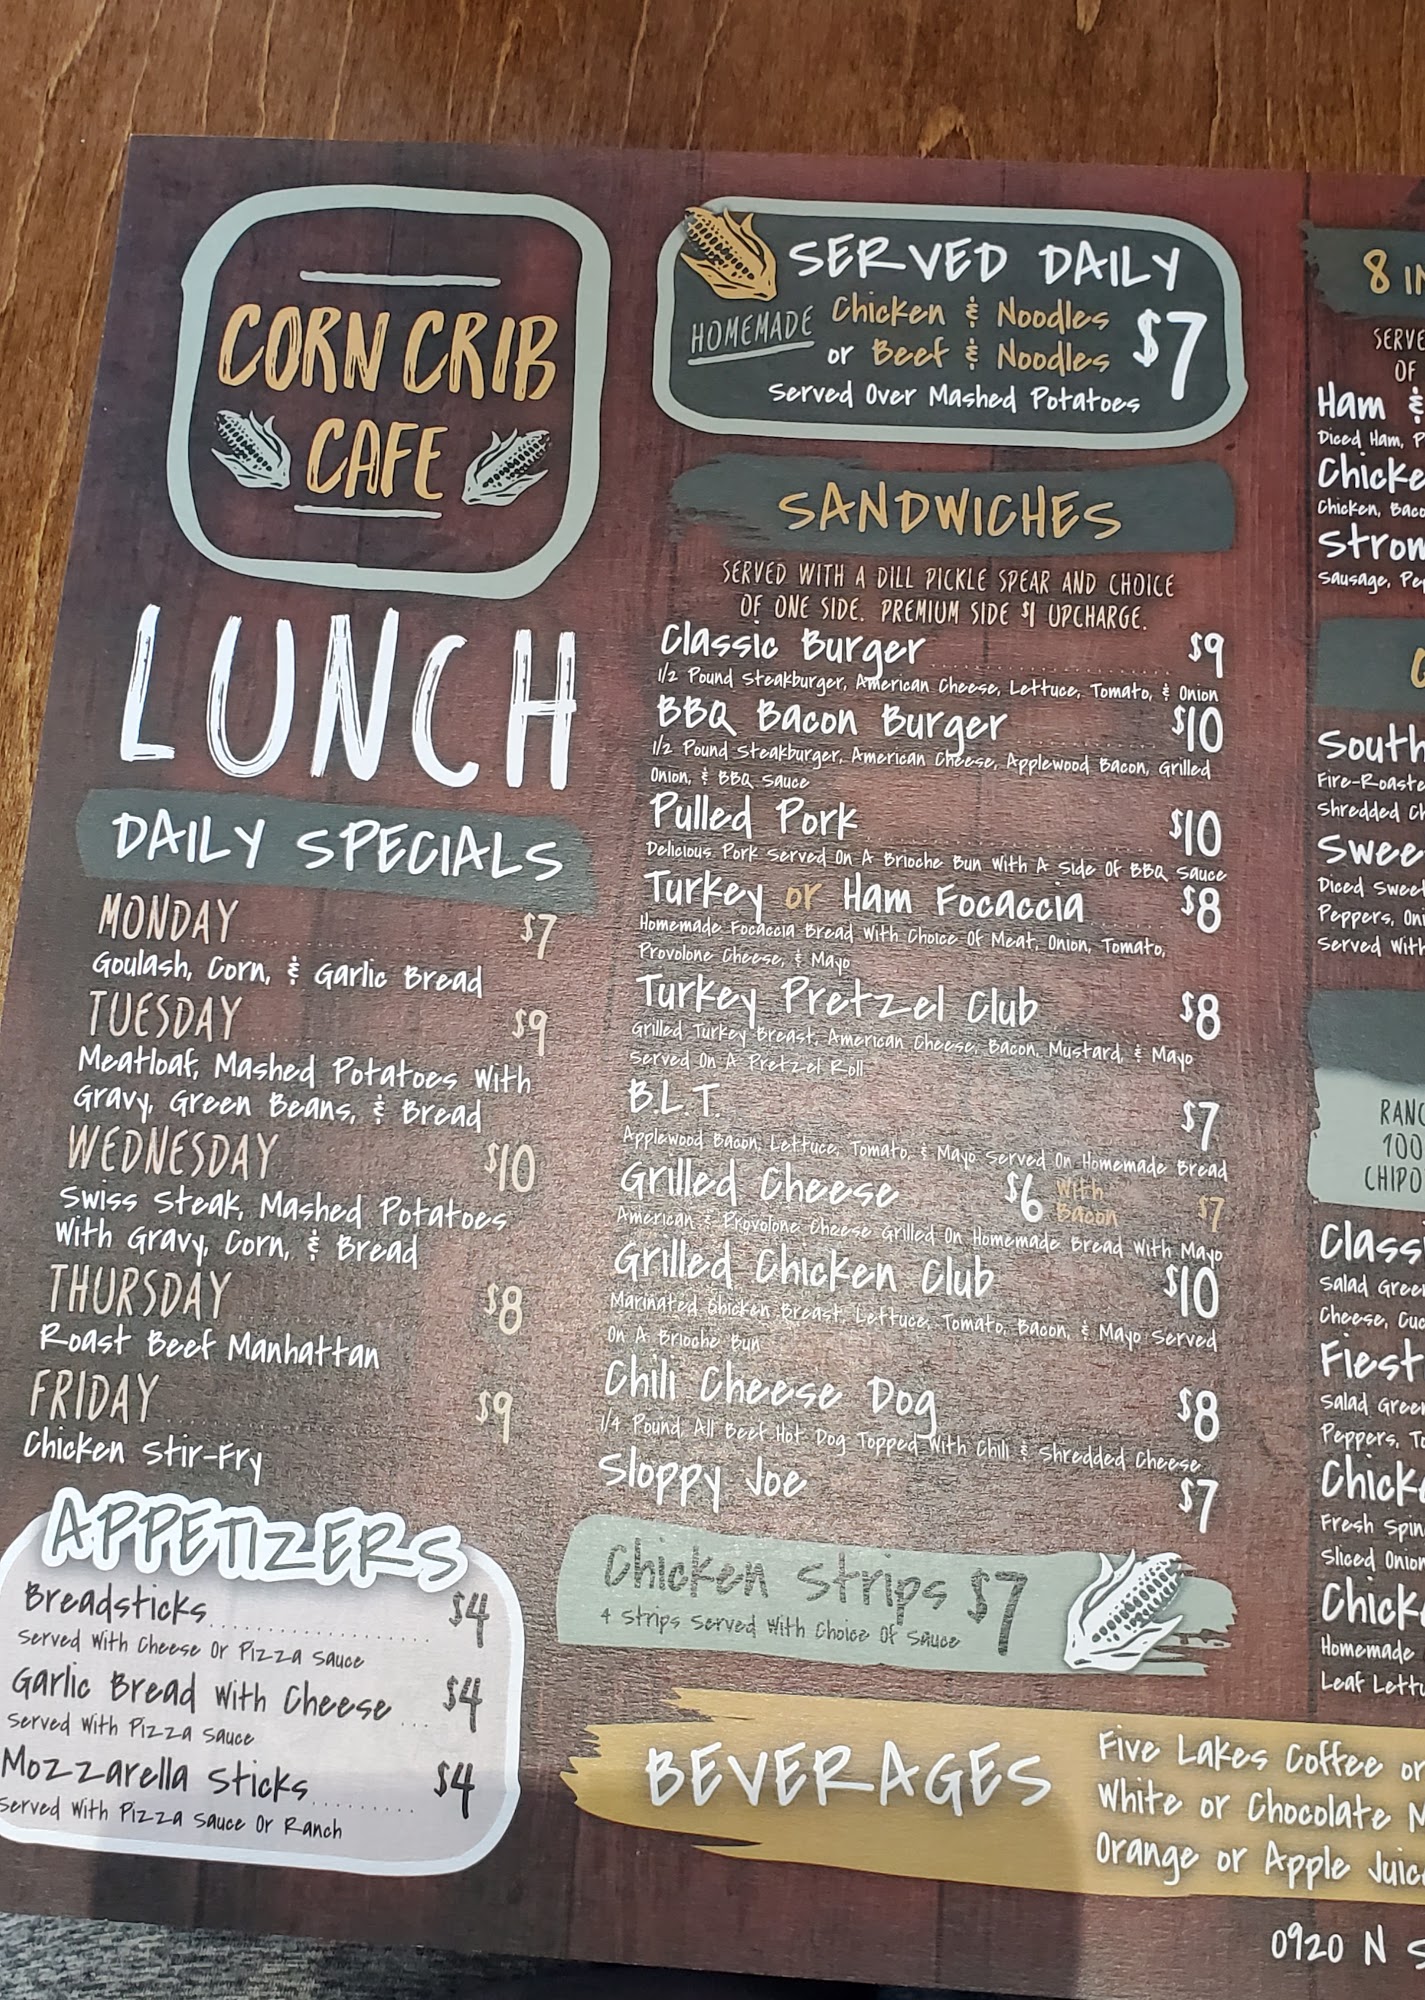 CORN CRIB
CAFE
LUNCH
DAILY SPECIALS
MONDAY $7
Goulash, Corn, & Garlic Bread
TUESDAY $9
Meatloaf, Mashed Potatoes With
Gravy, Green Beans, & Bread
WEDNESDAY $10
Swiss Steak, Mashed Potatoes
With Gravy, Corn, & Bread
THURSDAY $8
Roast Beef Manhattan
FRIDAY $9
Chicken Stir-Fry
APPETIZERS
Breadsticks $4
Served With Cheese Or Pizza Sauce
Garlic Bread With Cheese $4
Served With Pizza Sauce
Mozzarella Sticks $4
Served With Pizza Sauce Or Ranch
SERVED DAILY
HOMEMADE Chicken & Noodles
or Beef & Noodles $7
Served Over Mashed Potatoes
SANDWICHES
SERVED WITH A DILL PICKLE SPEAR AND CHOICE
OF ONE SIDE. PREMIUM SIDE $1 UPCHARGE.
Classic Burger $9
1/2 Pound Steakburger, American Cheese, Lettuce, Tomato, & Onion
BBQ Bacon Burger $10
1/2 Pound Steakburger, American Cheese, Applewood Bacon, Grilled
Onion, & BBQ Sauce
Pulled Pork $10
Delicious Pork Served On A Brioche Bun With A Side Of BBQ Sauce
Turkey or Ham Focaccia $8
Homemade Focaccia Bread With Choice Of Meat, Onion, Tomato,
Provolone Cheese, & Mayo
Turkey Pretzel Club $8
Grilled Turkey Breast, American Cheese, Bacon, Mustard, & Mayo
Served On A Pretzel Roll
B.L.T. $7
Applewood Bacon, Lettuce, Tomato, & Mayo Served On Homemade Bread
Grilled Cheese $6 With Bacon $7
American & Provolone Cheese Grilled On Homemade Bread With Mayo
Grilled Chicken Club $10
Marinated Chicken Breast, Lettuce, Tomato, Bacon, & Mayo Served
On A Brioche Bun
Chili Cheese Dog $8
1/4 Pound All Beef Hot Dog Topped With Chili & Shredded Cheese
Sloppy Joe $7
Chicken Strips $7
4 Strips Served With Choice Of Sauce
BEVERAGES
Five Lakes Coffee or
White or Chocolate
Orange or Apple
8
SERVE
OF
Ham &
Diced Ham,
Chicken,
Sausage,
Served With
100
Salad
Cheese,
Salad
Peppers,
Fresh
Sliced
Homemade
Leaf
0920 N